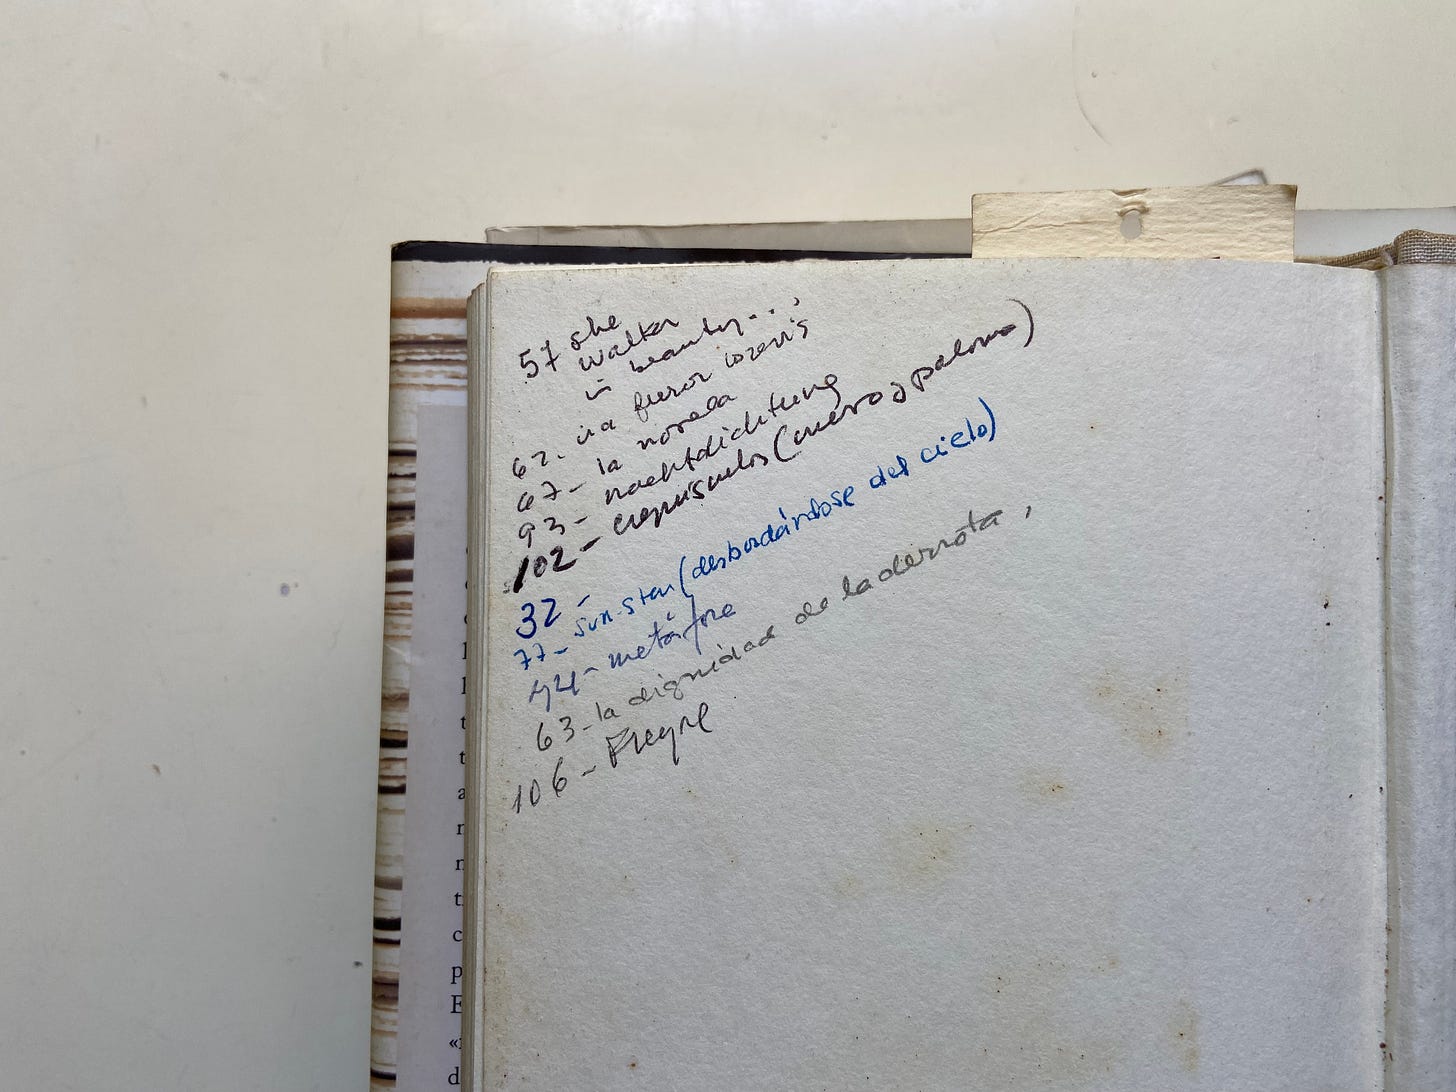 57 she
walks
in beauty...;
62.
67- la novela
93- nachtdichtung
102- crepúsculos (cuervo y paloma)
32-
77- sun-star (desbordándose del cielo)
44- metáfora
63- la dignidad de la derrota,
106- Elegye
t
t
a
t
c
p
E
d